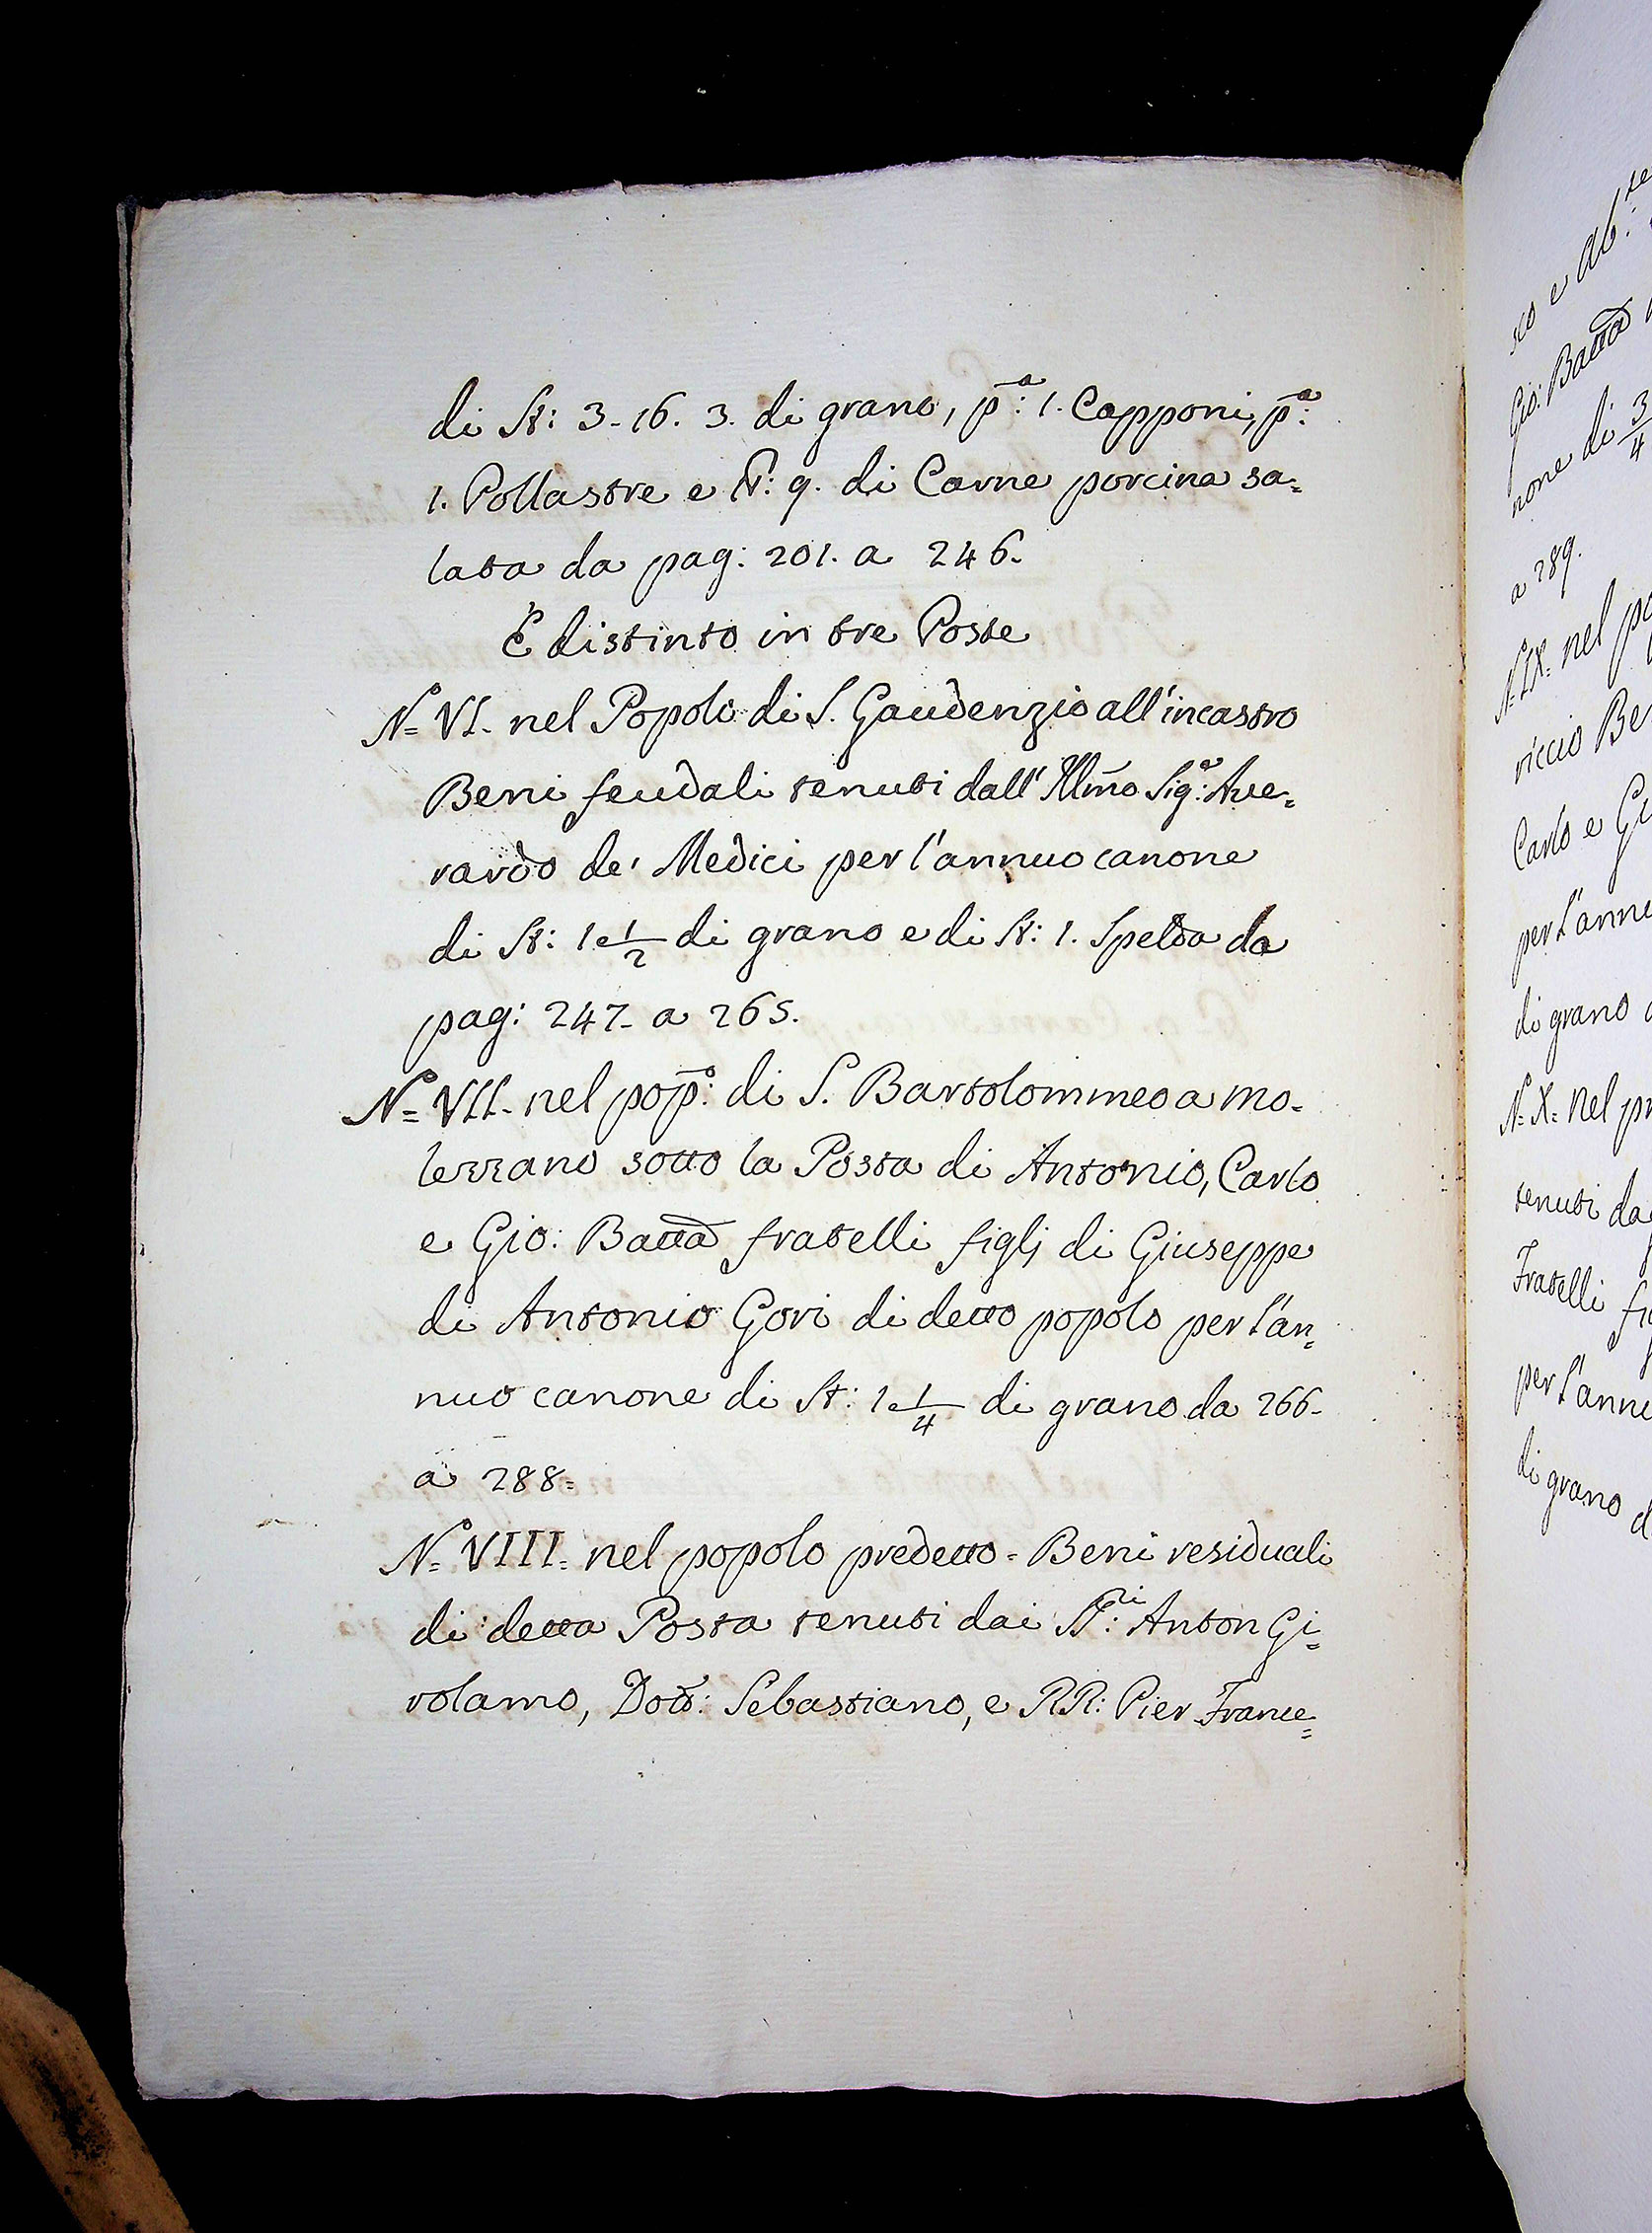 di St: 3-16. 3. di grano, p̄:ª 1. Capponi, p̄:ª
1. Pollastre e ℔: 9. di Carne porcina sa=
lata da pag: 201. a 246.
È distinto in tre Poste
N.º VI. nel Popolo di S. Gaudenzio all'incastro
Beni feudali tenuti dall' Illm̃o Sig:ʳ Ave=
rardo de' Medici per l'annuo canone
di St: 1 e 1/2 di grano e di St: 1. Spelda da
pag: 247. a 265.
N.º VII. nel pop̄:º di S. Bartolommeo a mo=
lezzano sotto la Posta di Antonio, Carlo
e Gio: Batta fratelli figlj di Giuseppe
di Antonio Gori di detto popolo per l'an=
nuo canone di St: 1 e 1/4 di grano da 266.
a 288=
N.º VIII= nel popolo predetto = Beni residuali
di detta Posta tenuti dai SS:ʳⁱ Anton Gi=
rolamo, Dott: Sebastiano, e RR: Pier France=
sco e Ab:te
Gio: Batta
none di 3/4
a 289.
N.º IX= nel po
riccio Be
Carlo e Gi
per l'annu
di grano
N.º X= nel
tenuti da
Fratelli fi
per l'annu
di grano d